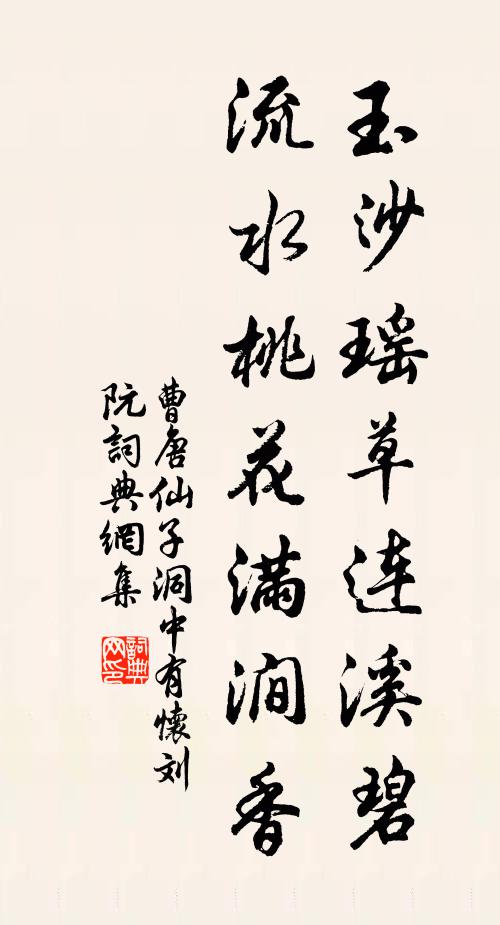 玉沙瑶草连溪碧
流水桃花满涧香
曹唐仙子洞中有懷刘
阮詞典網集
詞典
网印